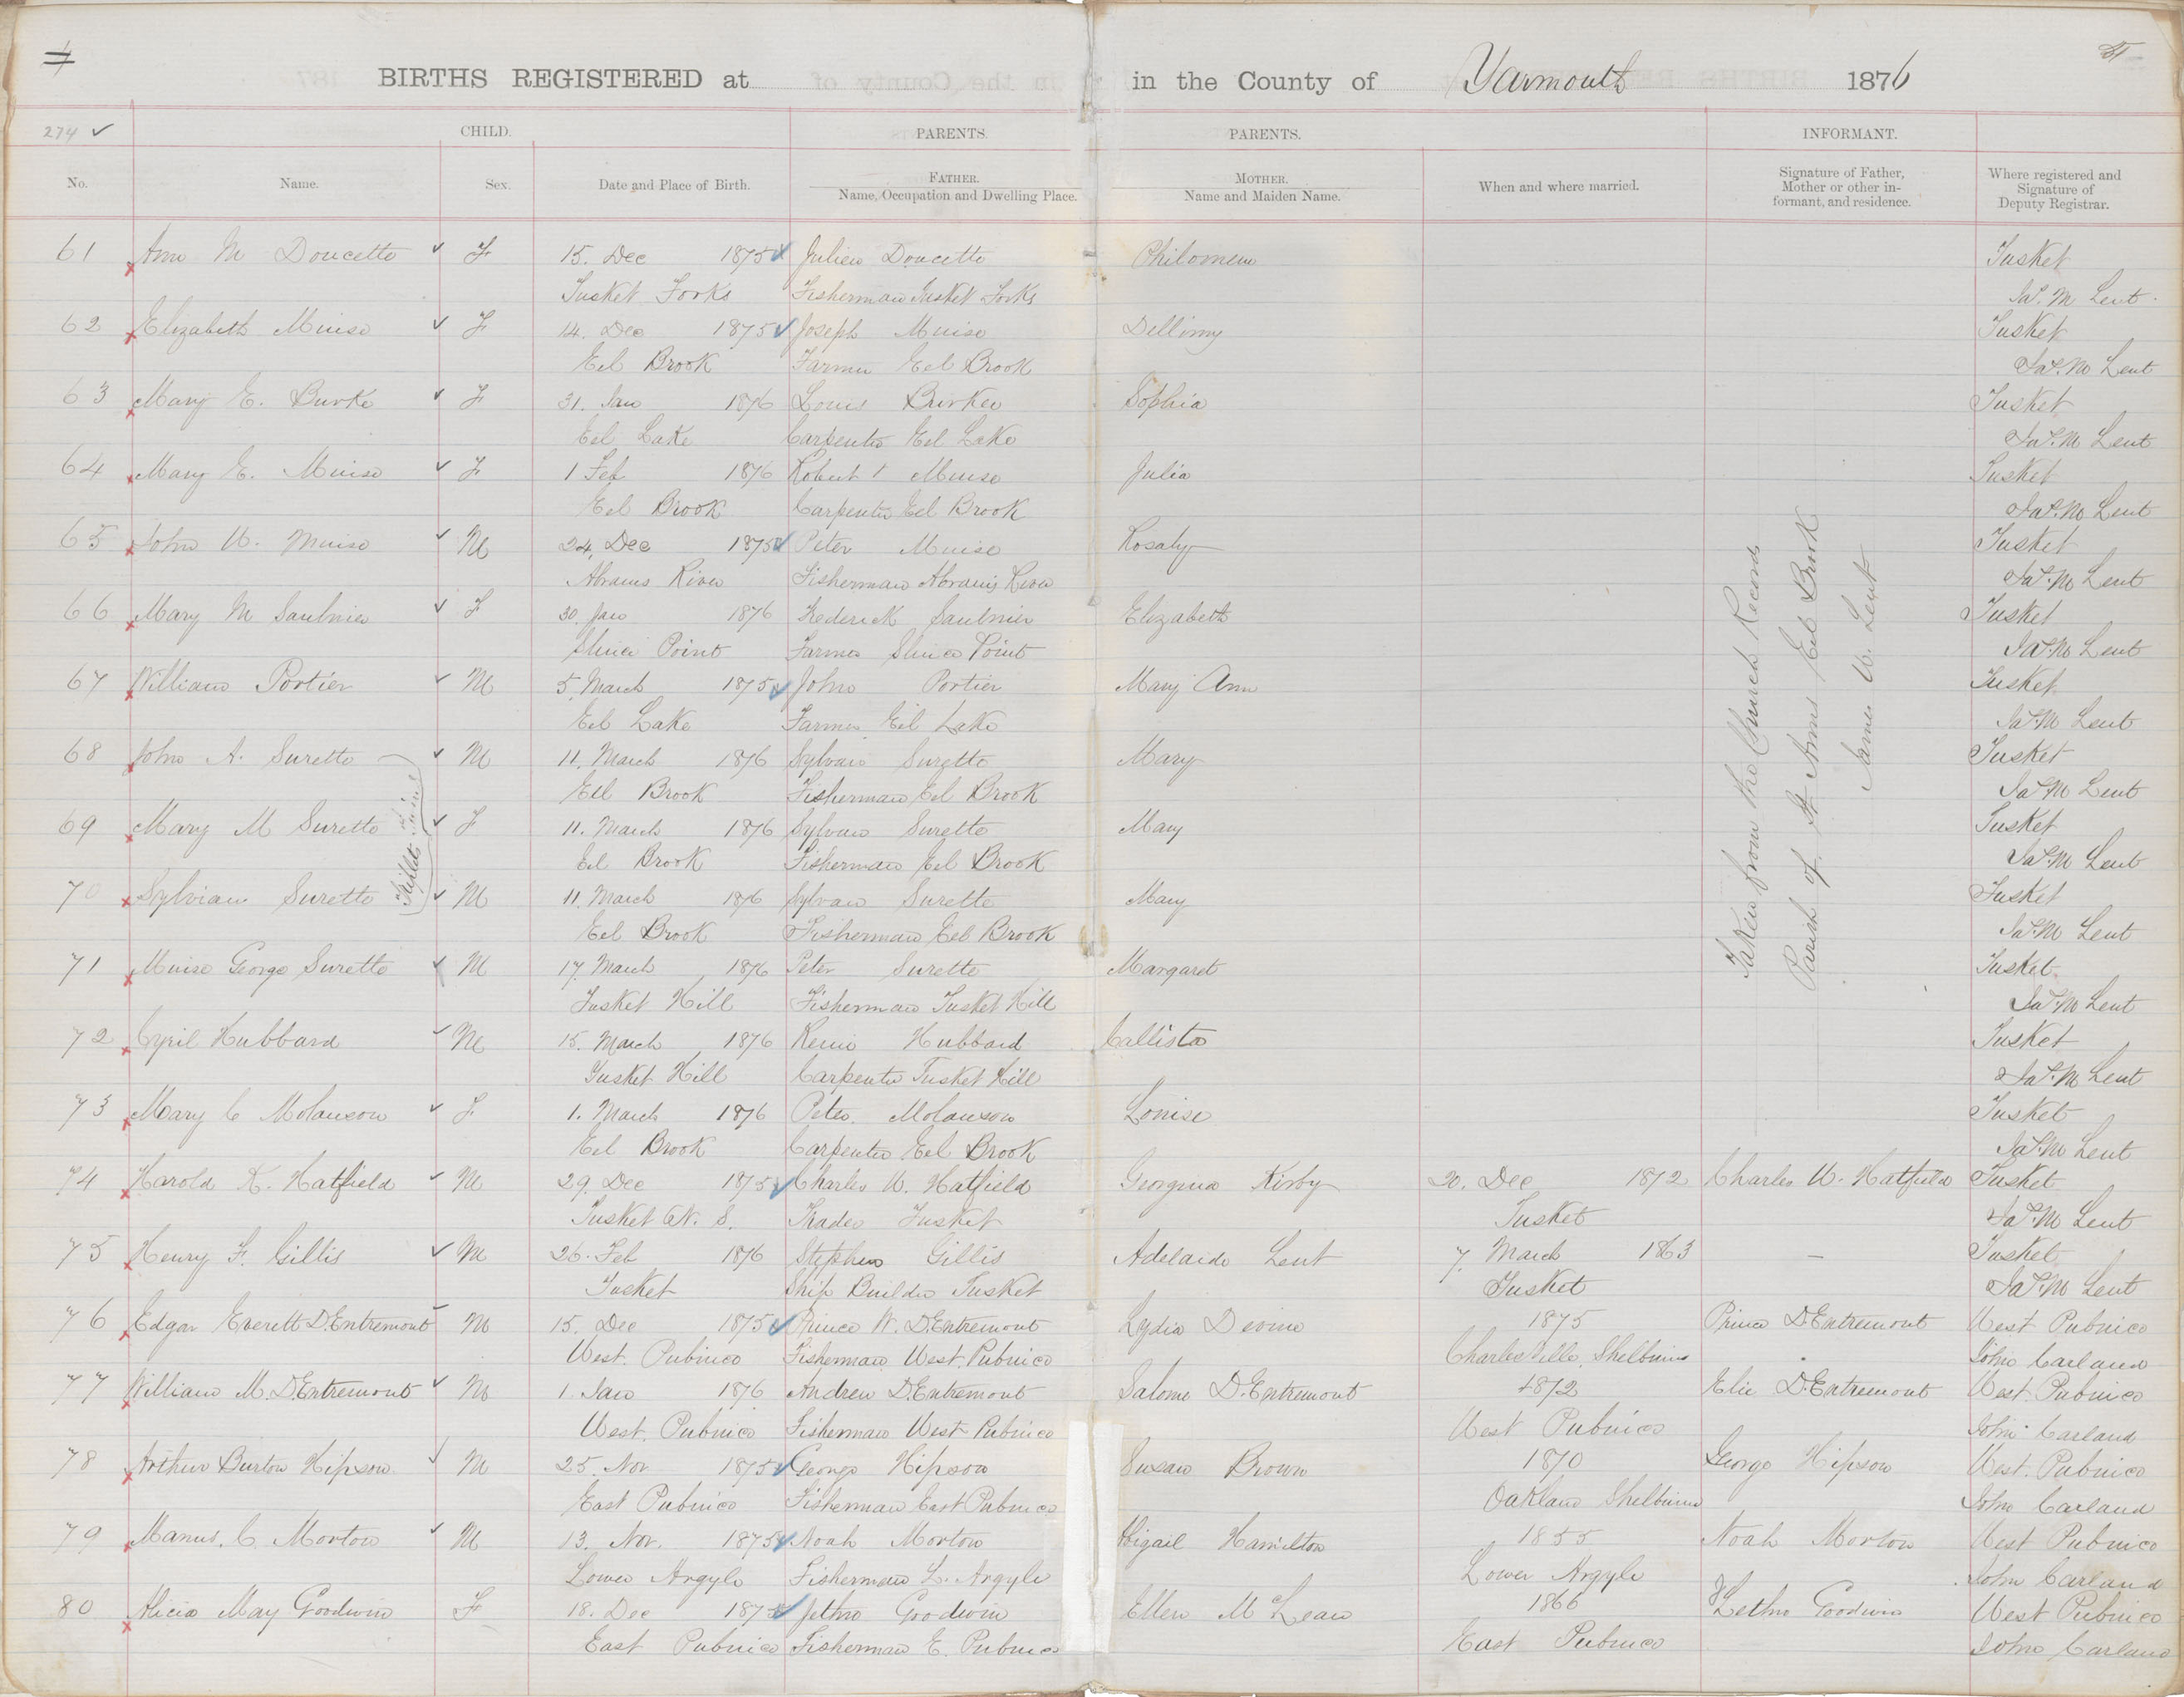 BIRTHS REGISTERED at in the County of Yarmouth 1876
274 ✓ CHILD. PARENTS. PARENTS. INFORMANT.
No. Name. Sex. Date and Place of Birth. FATHER. Name, Occupation and Dwelling Place. MOTHER. Name and Maiden Name. When and where married. Signature of Father, Mother or other informant, and residence. Where registered and Signature of Deputy Registrar.
61 Ann M Doucette F 15. Dec 1875 Julien Doucette Philomen Tusket
Tusket Forks Fisherman Tusket Forks Jas. M Lent
62 Elizabeth Muise F 14. Dec 1875 Joseph Muise Dellimy Tusket
Eel Brook Farmer Eel Brook Jas. M Lent
63 Mary E. Burke F 31. Jan 1876 Louis Burke Sophia Tusket
Eel Lake Carpenter Eel Lake Jas. M Lent
64 Mary E. Muise F 1 Feb 1876 Robert Muise Julia Tusket
Eel Brook Carpenter Eel Brook Jas. M Lent
65 John W. Muise M 24. Dec 1875 Peter Muise Rosaly Tusket
Abrams River Fisherman Abrams River Jas. M Lent
66 Mary M Saulnier F 30. Jan 1876 Frederick Saulnier Elizabeth Tusket
Sluice Point Farmer Sluice Point Jas. M Lent
67 William Portier M 5. March 1875 John Portier Mary Ann Tusket
Eel Lake Farmer Eel Lake Jas. M Lent
68 John A. Surette M 11. March 1876 Sylvan Surette Mary Tusket
Eel Brook Fisherman Eel Brook Jas. M Lent
69 Mary M Surette F 11. March 1876 Sylvan Surette Mary Tusket
Eel Brook Fisherman Eel Brook Jas. M Lent
70 Sylvian Surette M 11. March 1876 Sylvan Surette Mary Tusket
Eel Brook Fisherman Eel Brook Jas. M Lent
Triplets
71 Muise George Surette M 17. March 1876 Peter Surette Margaret Tusket
Tusket Hill Fisherman Tusket Hill Jas. M Lent
72 Cyril Hubbard M 15. March 1876 Remi Hubbard Callista Tusket
Tusket Hill Carpenter Tusket Hill Jas. M Lent
73 Mary C Molanson F 1. March 1876 Peter Molanson Louise Tusket
Eel Brook Carpenter Eel Brook Jas. M Lent
Taken from the Church Records
Parish of St Anns Eel Brook
James M. Lent
74 Harold K. Hatfield M 29. Dec 1875 Charles W. Hatfield Georgina Kirby 20. Dec 1872 Charles W. Hatfield Tusket
Tusket N. S. Trader Tusket Tusket Jas. M Lent
75 Henry F. Gillis M 26. Feb 1876 Stephen Gillis Adelaide Lent 7. March 1863 — Tusket
Tusket Ship Builder Tusket Tusket Jas. M Lent
76 Edgar Everett D.Entremont M 15. Dec 1875 Prince W. D.Entremont Lydia Devine 1875 Prince D.Entremont West Pubnico
West. Pubnico Fisherman West. Pubnico Charlesville, Shelburne John Carland
77 William M. D.Entremont M 1. Jan 1876 Andrew D.Entremont Salome D.Entremont 1872 Elie D.Entremont West. Pubnico
West. Pubnico Fisherman West Pubnico West Pubnico John Carland
78 Arthur Burton Hipson M 25. Nov 1875 George Hipson Susan Brown 1870 George Hipson West. Pubnico
East Pubnico Fisherman East Pubnico Oakland Shelburne John Carland
79 Manus. C. Morton M 13. Nov. 1875 Noah Morton Abigail Hamilton 1855 Noah Morton West Pubnico
Lower Argyle Fisherman L. Argyle Lower Argyle John Carland
80 Alicia May Goodwin F 18. Dec 1875 Jethro Goodwin Ellen McLean 1866 Jethro Goodwin West Pubnico
East Pubnico Fisherman E. Pubnico East Pubnico John Carland